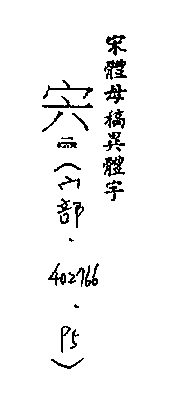 宋體母稿異體字
宍二（宀部．402766．P5）